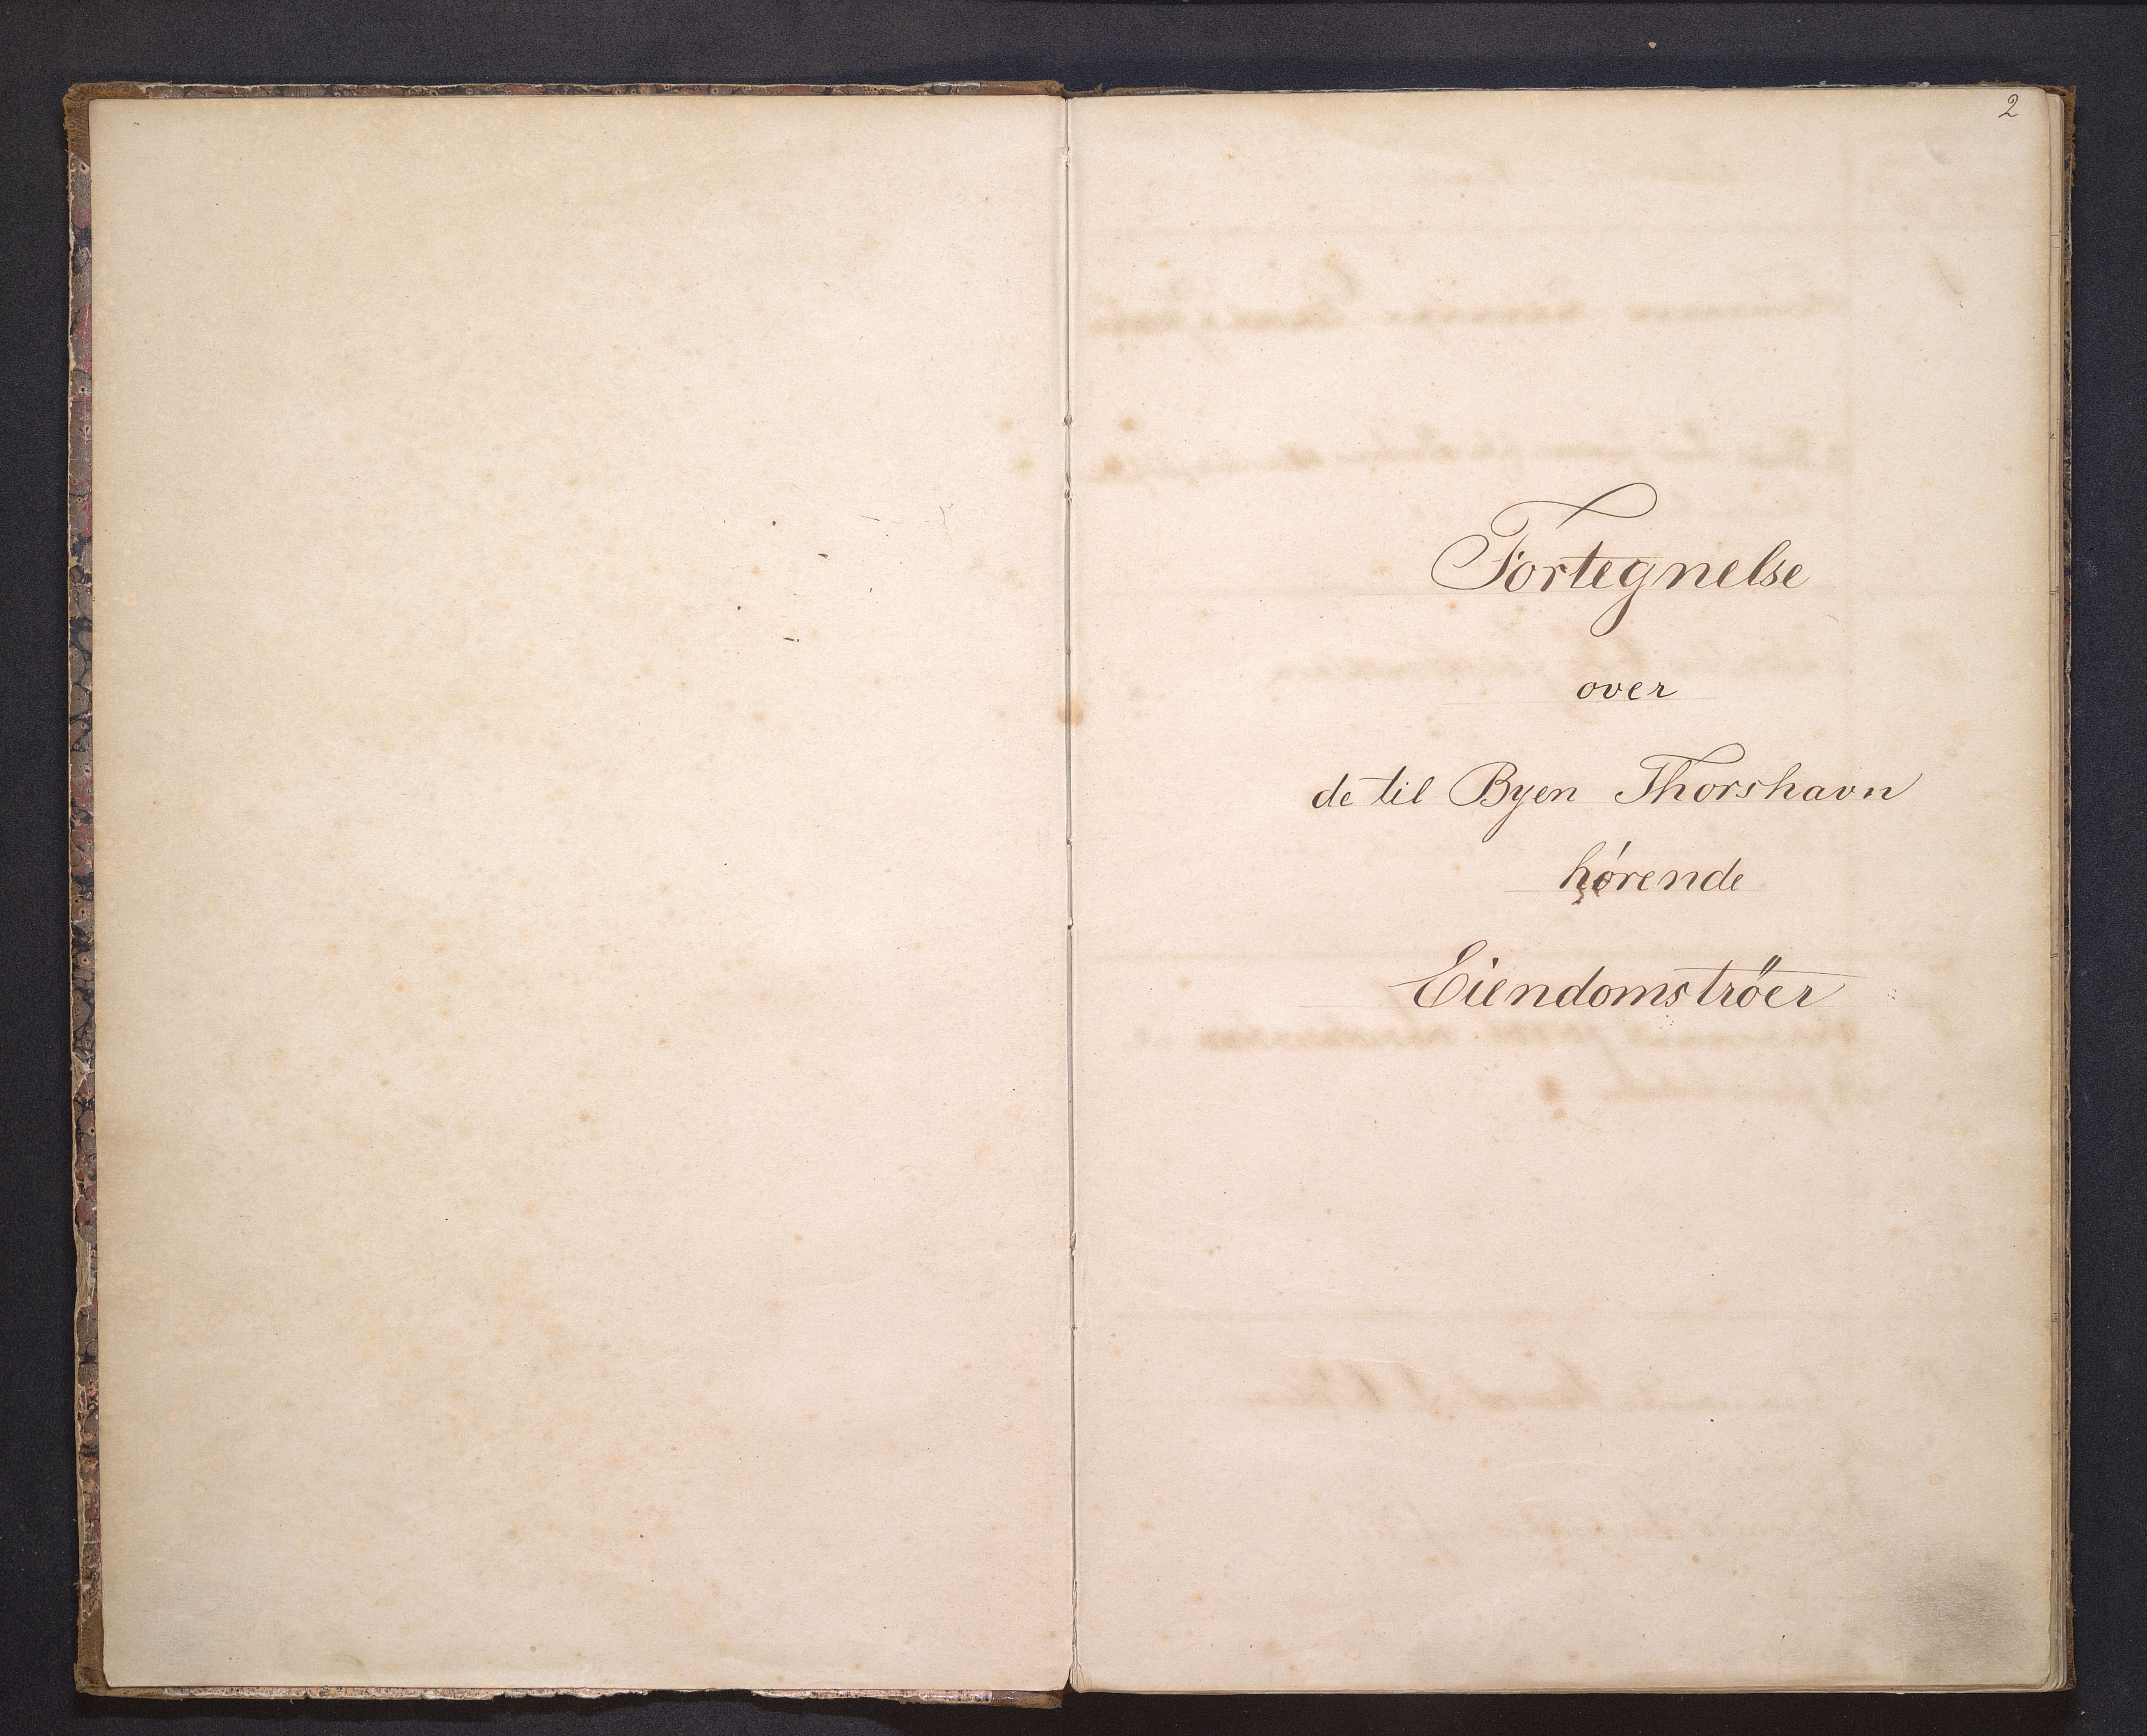 2
Fortegnelse
over
de til Byen Thorshavn
hørende
Eiendomströer